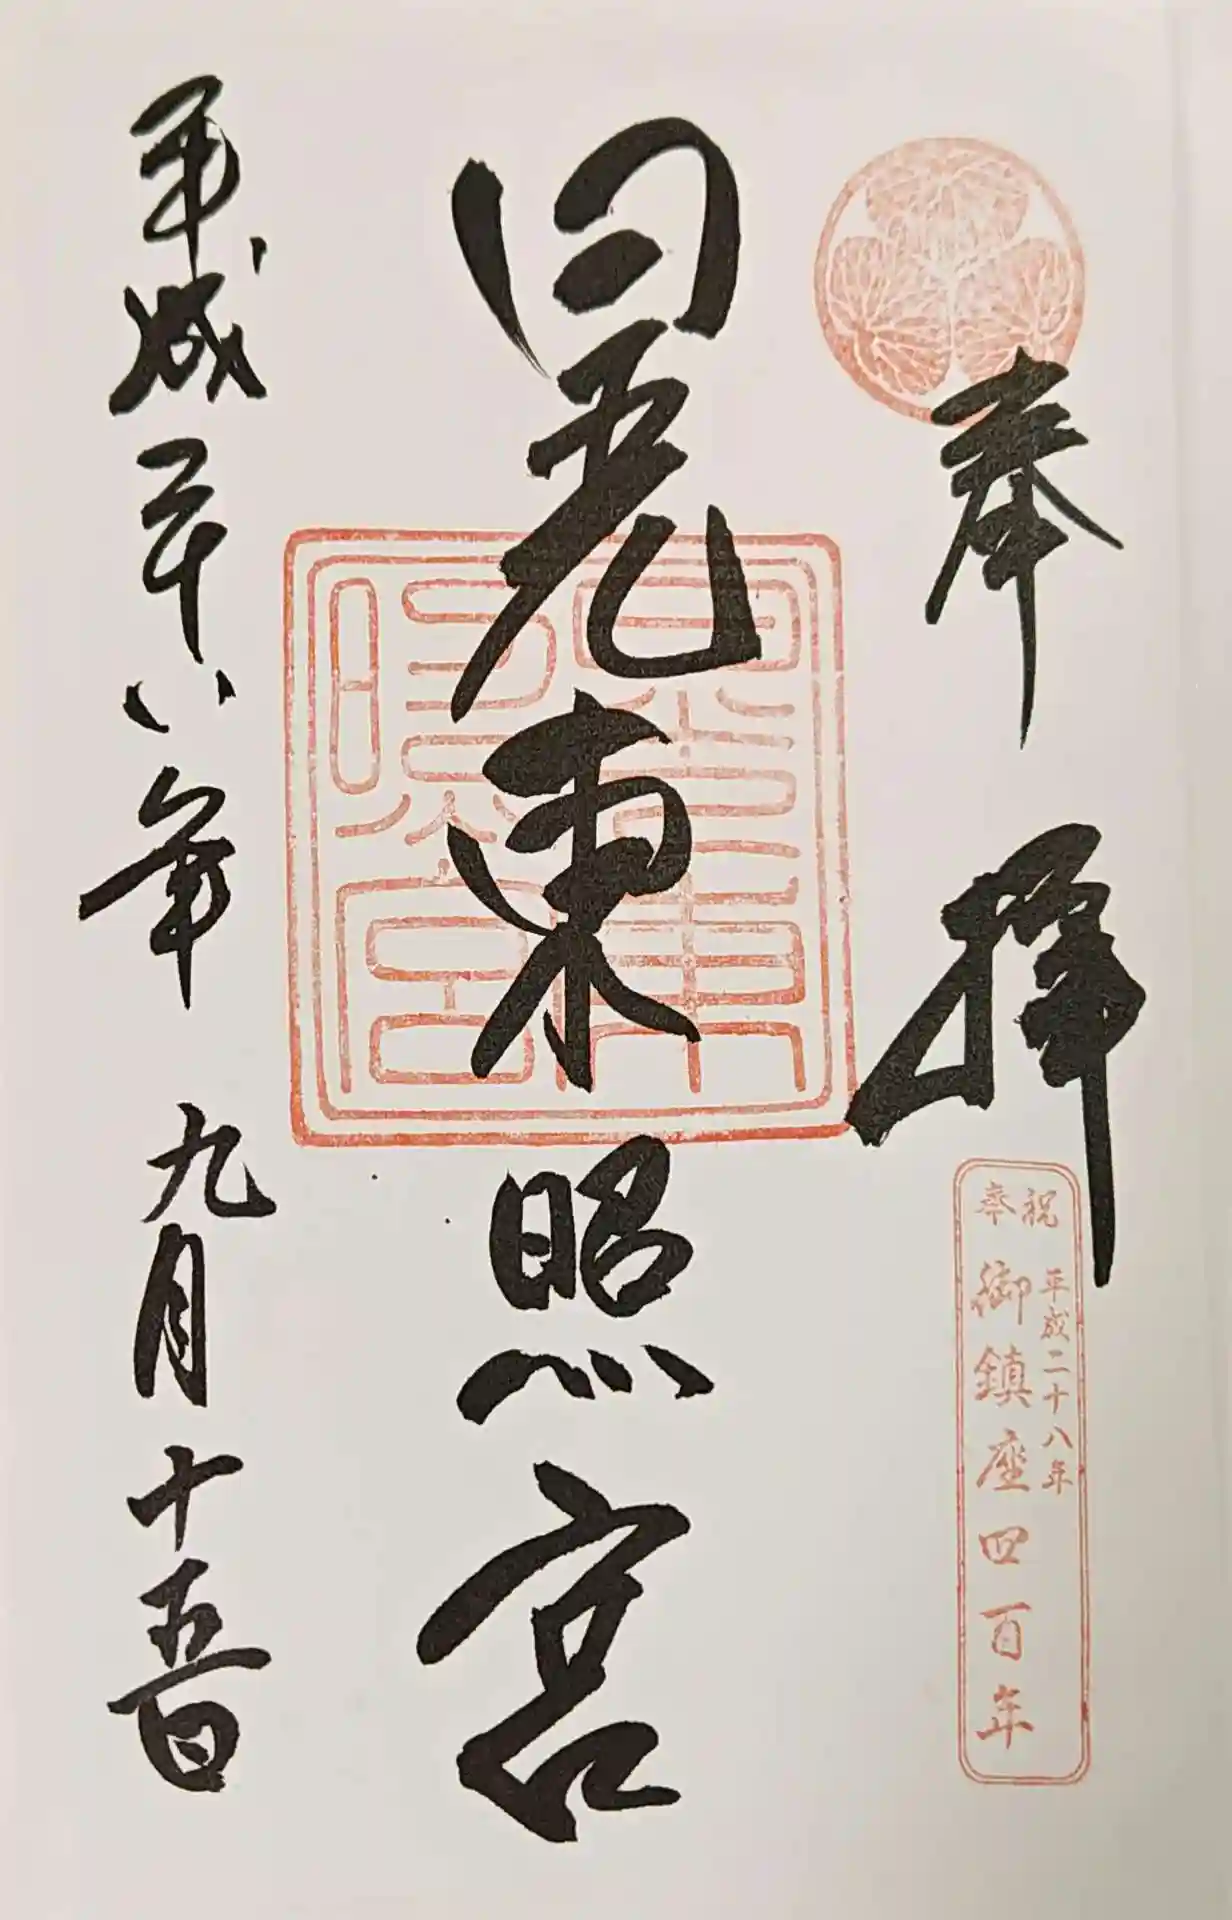 奉拝
奉祝
平成二十八年
御鎮座四百年
日光東照宮
平成二十八年 九月十五日